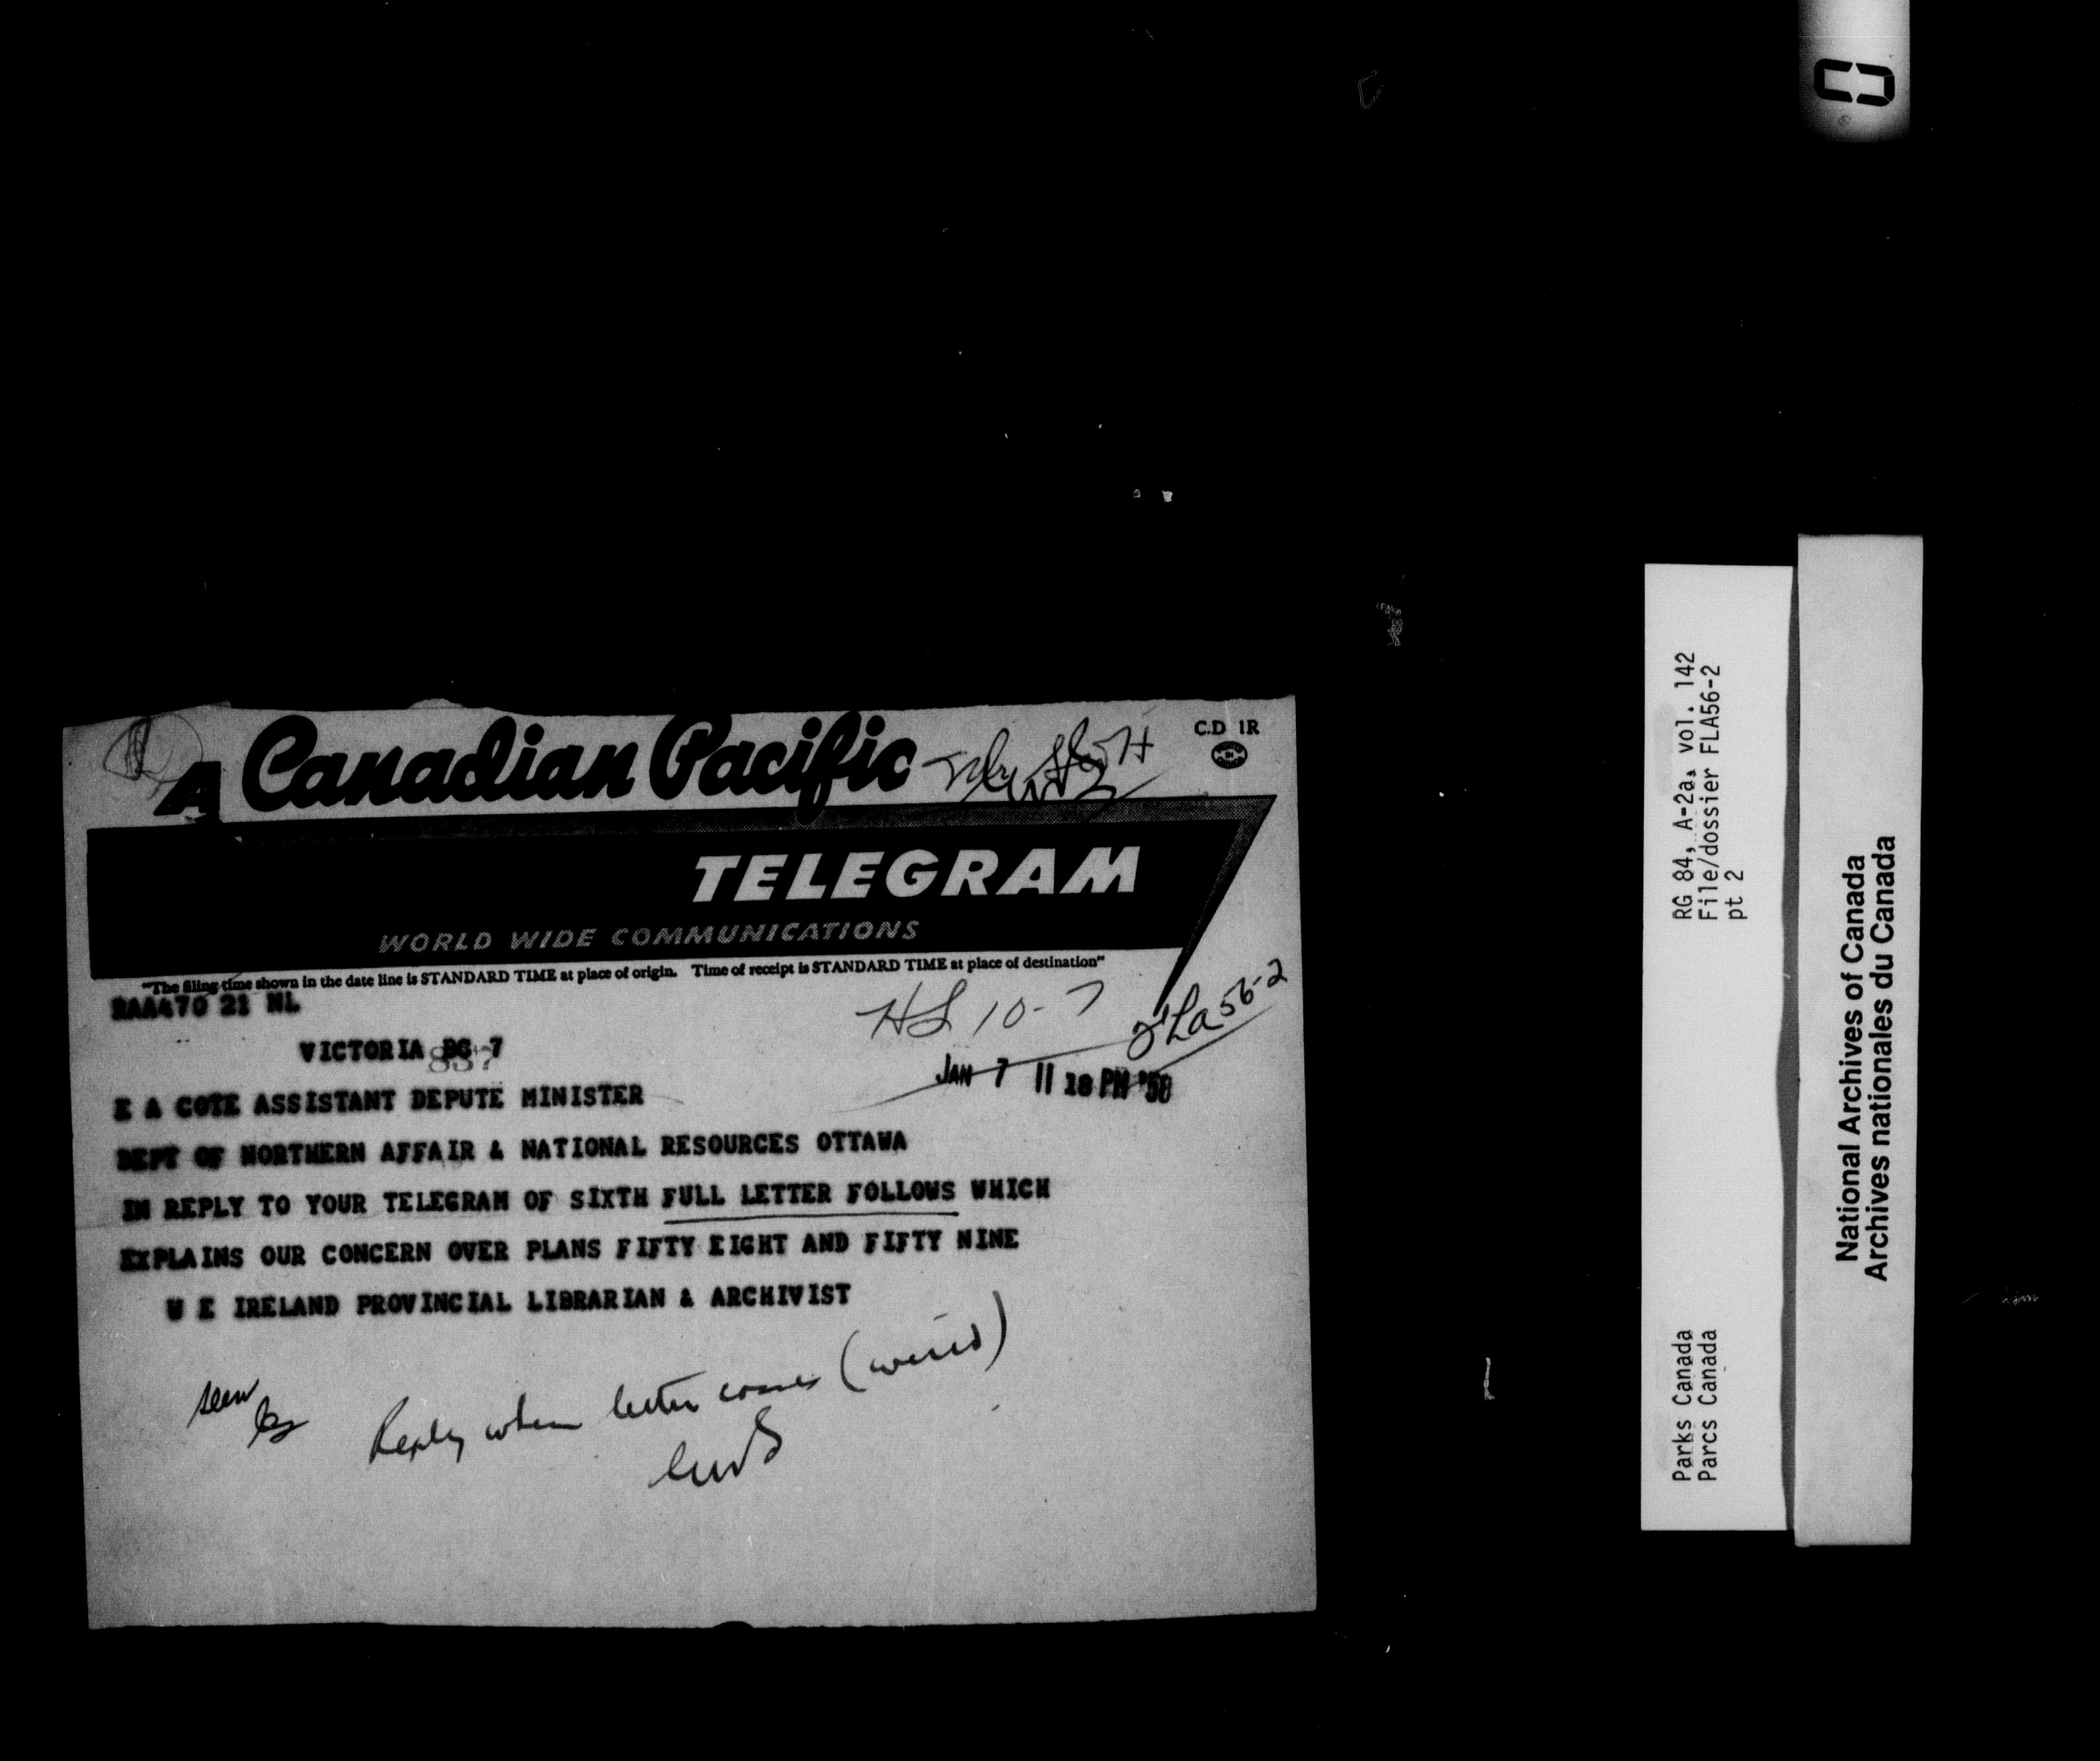 Canadian Pacific
C.D 1R
TELEGRAM
WORLD WIDE COMMUNICATIONS
"The filing time shown in the date line is STANDARD TIME at place of origin. Time of receipt is STANDARD TIME at place of destination"
RAA470 21 NL
HS 10-7
FLa 56-2
VICTORIA BC 7
837
JAN 7 11 18 PM '58
E A COTE ASSISTANT DEPUTE MINISTER
DEPT OF NORTHERN AFFAIR & NATIONAL RESOURCES OTTAWA
IN REPLY TO YOUR TELEGRAM OF SIXTH FULL LETTER FOLLOWS WHICH
EXPLAINS OUR CONCERN OVER PLANS FIFTY EIGHT AND FIFTY NINE
W E IRELAND PROVINCIAL LIBRARIAN & ARCHIVIST
seen
Reply when letter comes (wired)
RG 84, A-2a, vol. 142
File/dossier FLA56-2
pt 2
Parks Canada
Parcs Canada
National Archives of Canada
Archives nationales du Canada